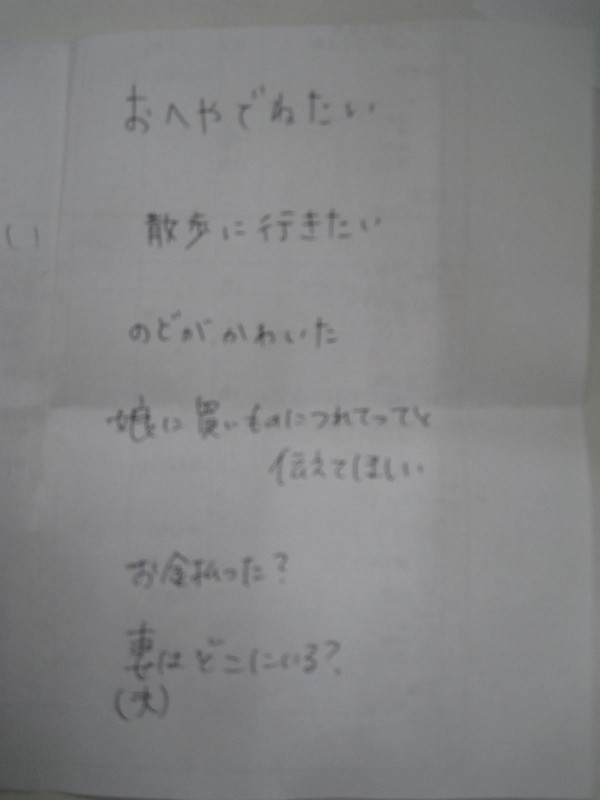 おへやでねたい
散歩に行きたい
のどがかわいた
娘に買いものにつれてってと
伝えてほしい
お金払った?
妻はどこにいる?
(夫)